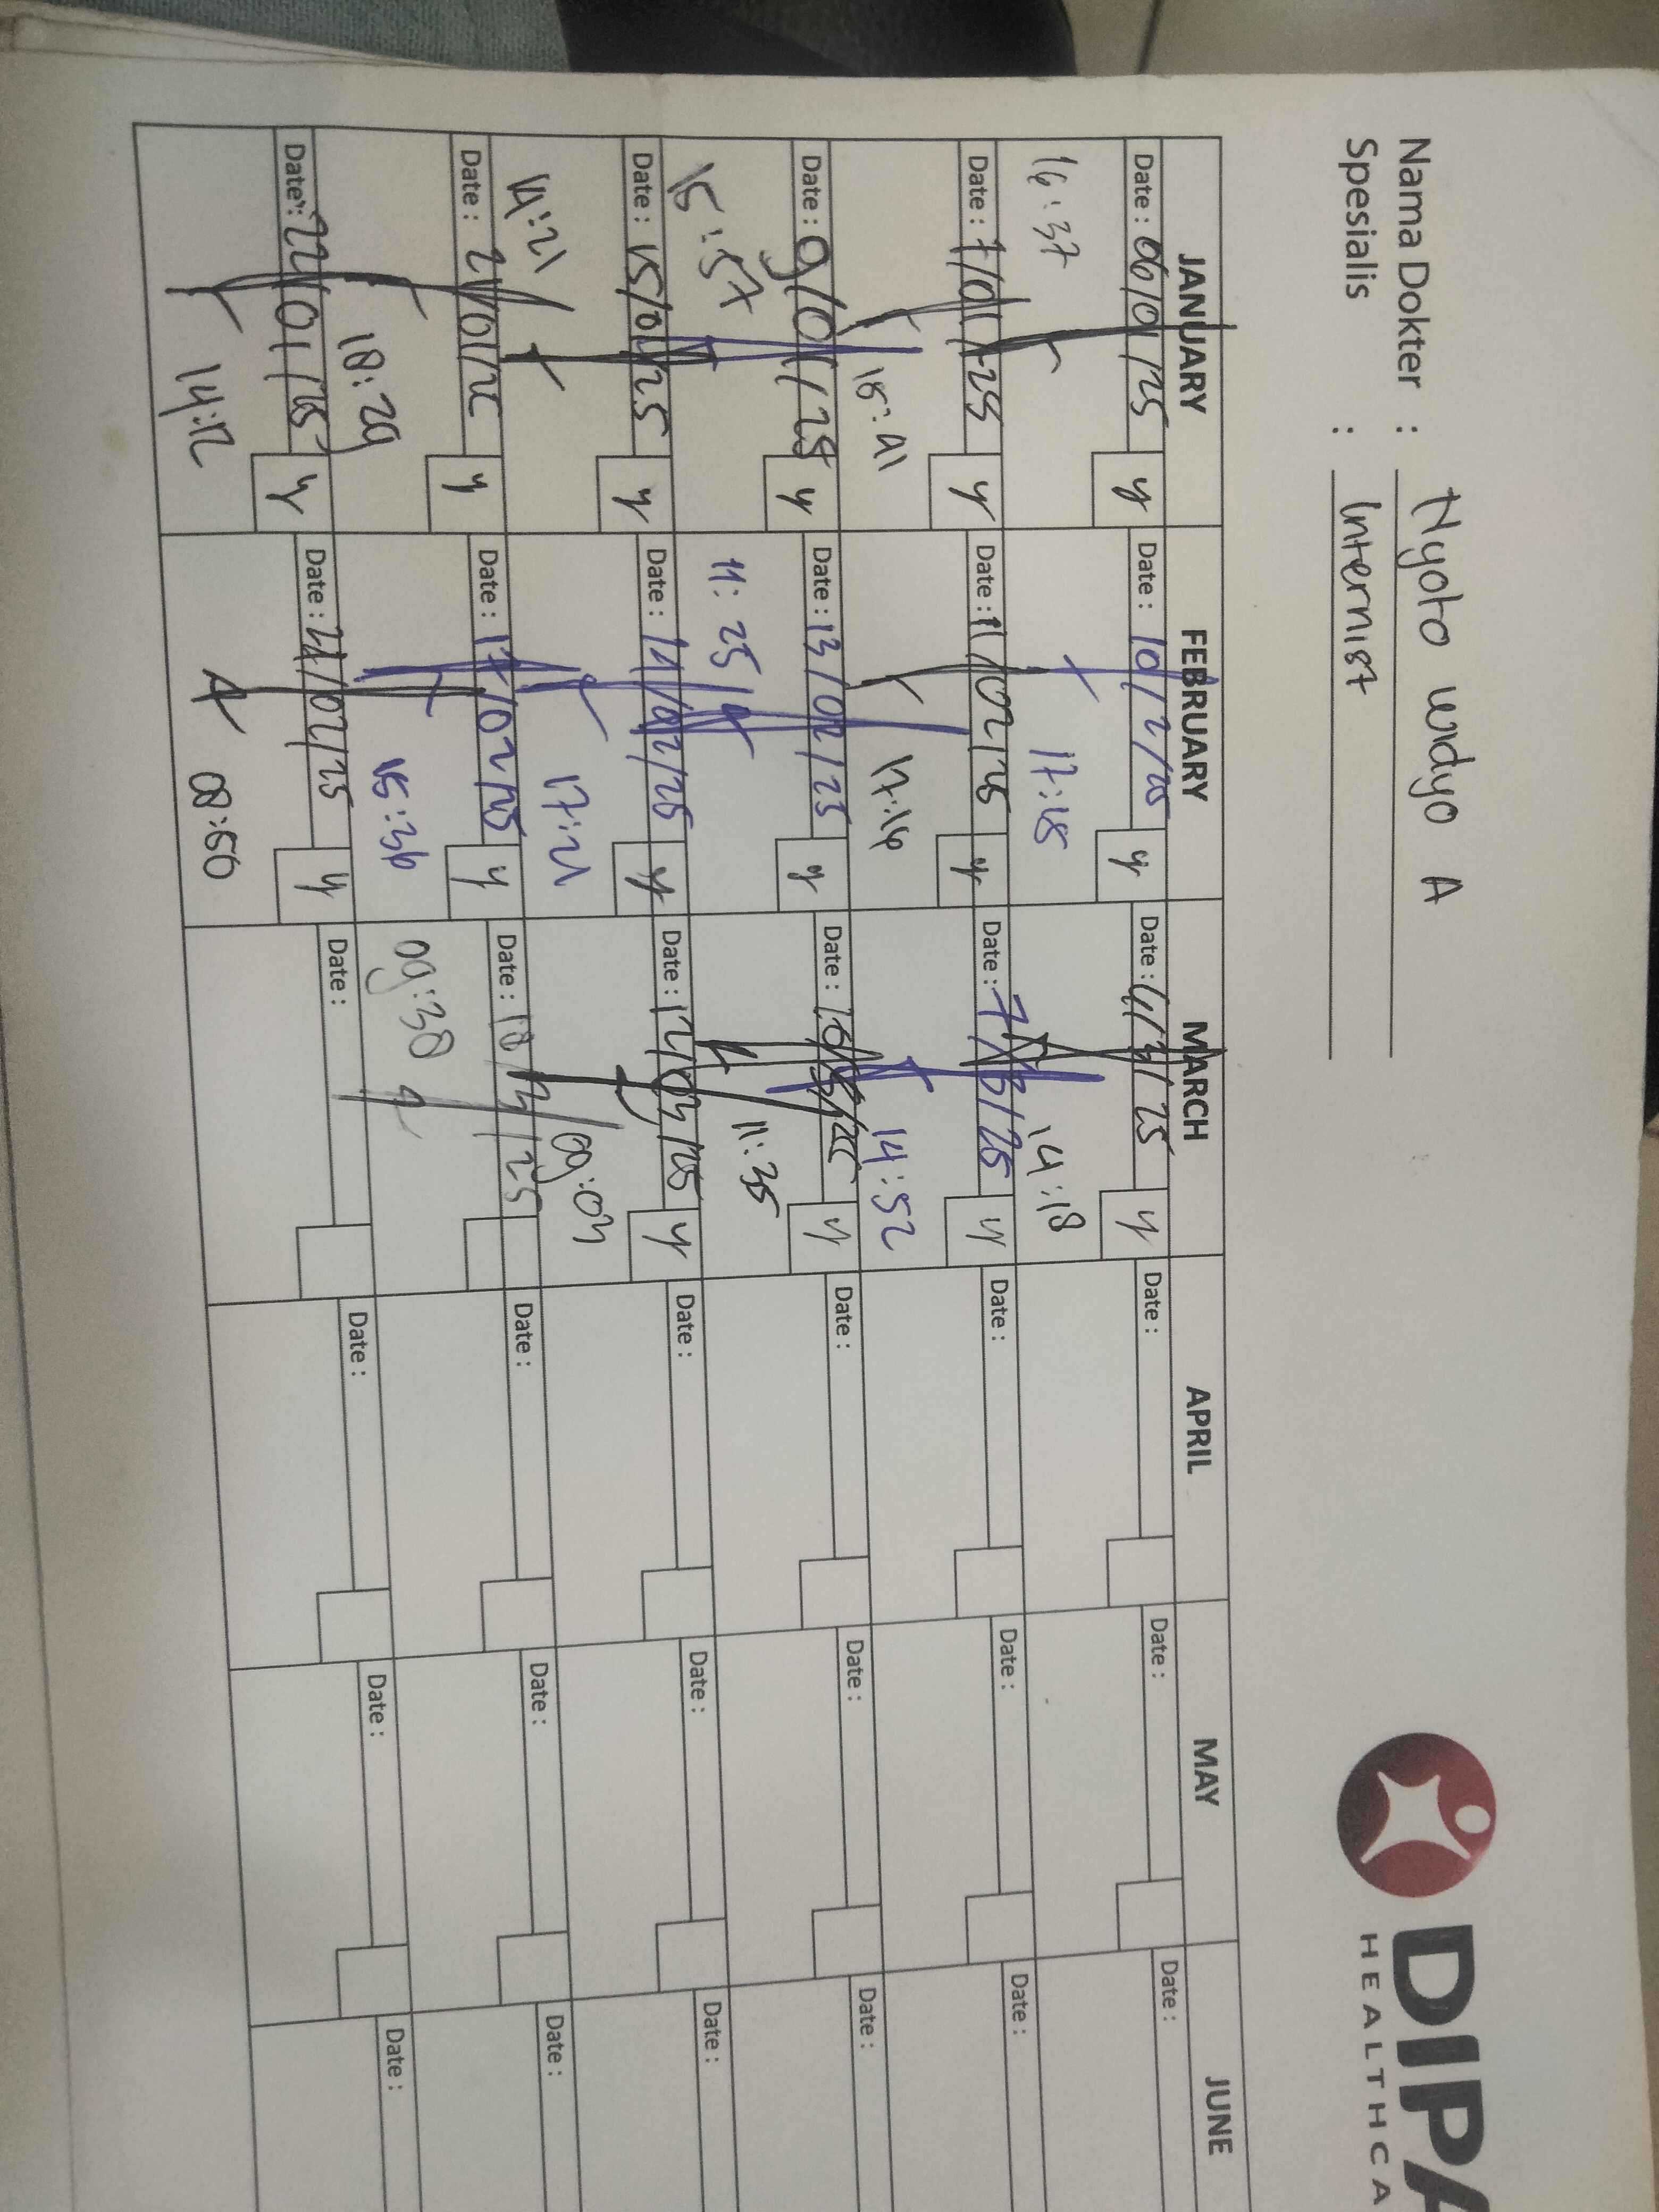 Nama Dokter : Nyoto Widyo A
Spesialis : Internist
DIPA
HEALTHCA
JANUARY FEBRUARY MARCH APRIL MAY JUNE
Date : 06/01/25 y Date : 10/2/25 y Date : 4/3/25 y Date : Date : Date :
16:37 17:18 14:18
Date : 7/01/25 y Date : 11/02/25 y Date : 7/3/25 y Date : Date : Date :
17:16 14:52
Date : 09/01/25 y Date : 13/02/25 y Date : y Date : Date : Date :
15:57 11:25 11:35
Date : 15/01/25 y Date : 14/02/25 y Date : 12/03/25 y Date : Date : Date :
14:21 17:21 09:03
Date : 21/01/25 y Date : 17/02/25 y Date : 18/3/25 Date : Date : Date :
18:29 15:36 09:38
Date : 22/01/25 y Date : 21/02/25 y Date : Date : Date : Date :
14:12 08:50